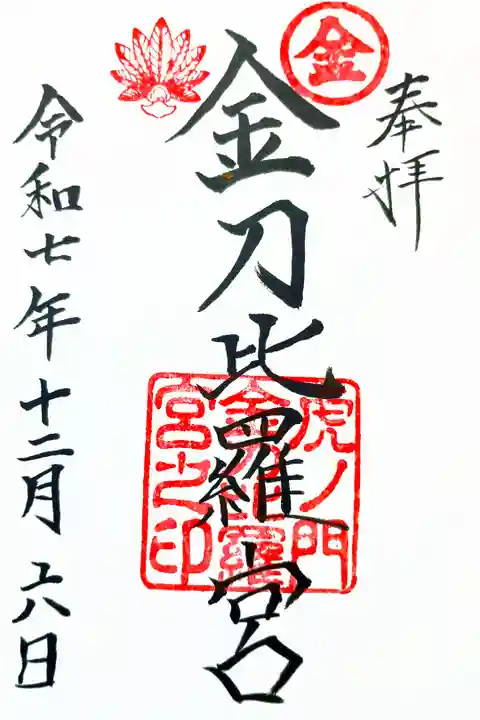 奉拝
金
金刀比羅宮
虎ノ門
金刀比羅
宮之印
令和七年十二月 日